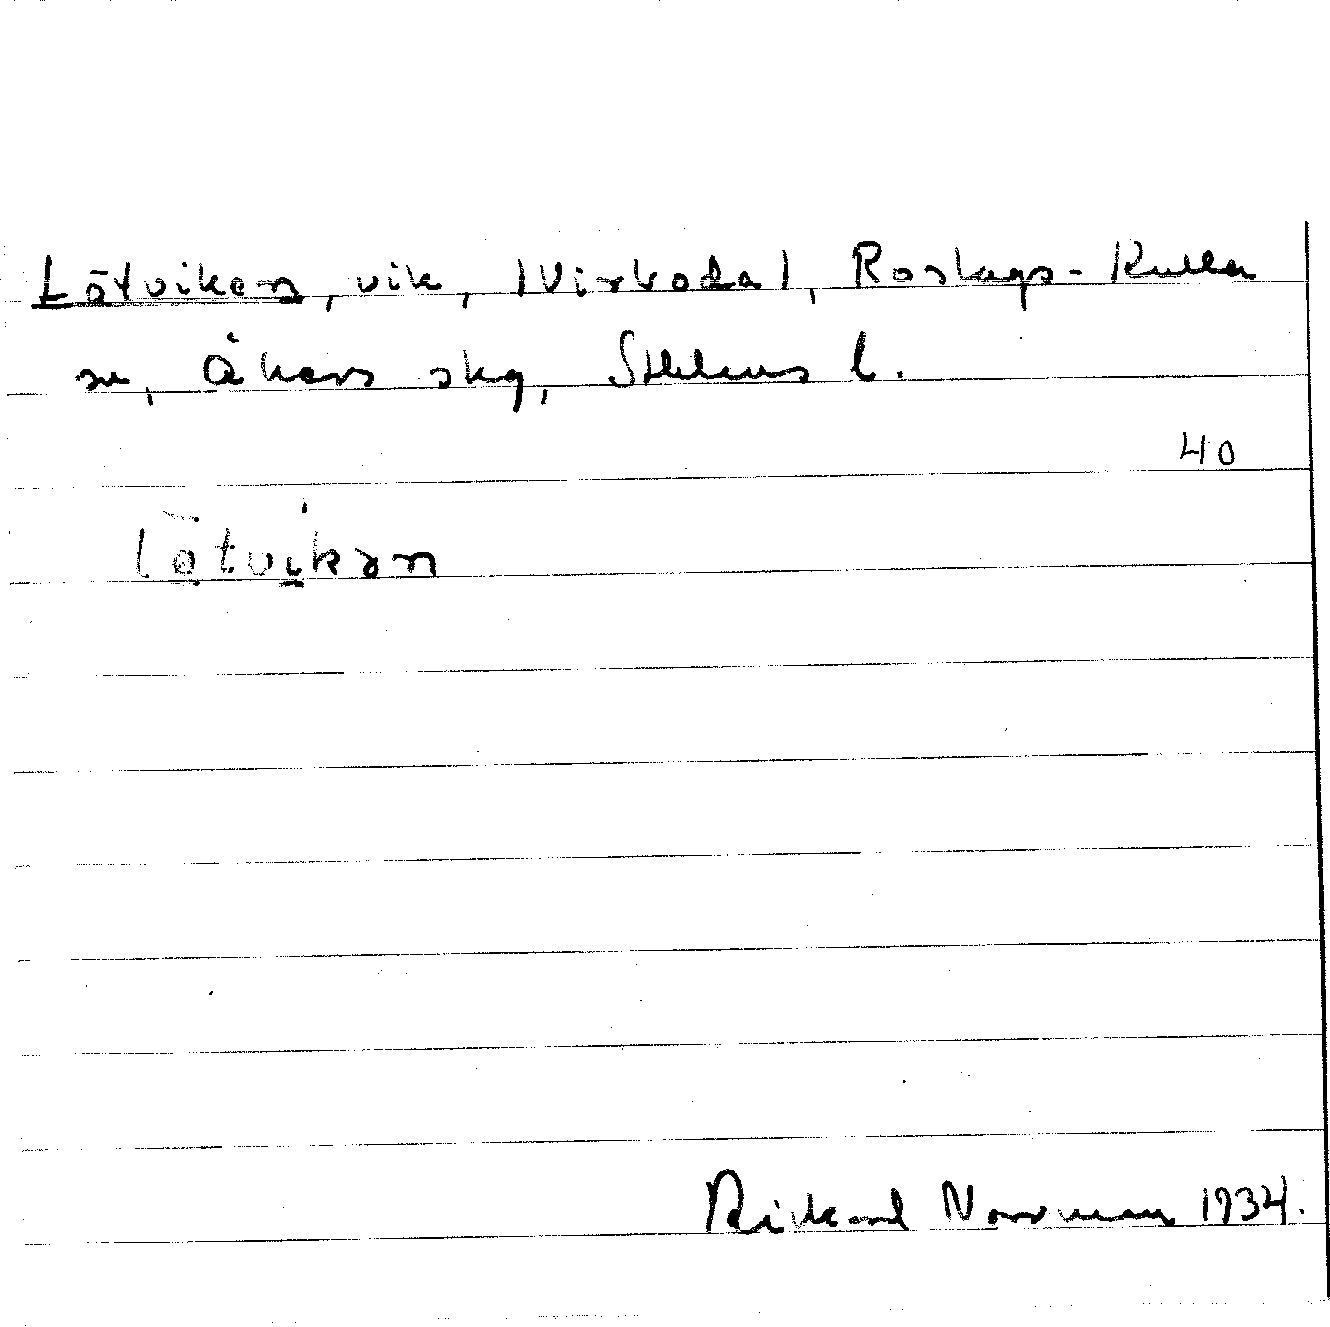 Lötviken, vik, (Virboda), Roslags-Kulla
sn, Åkers skg, Sthlms l.
40
lö̀tvikən
Rickard Norrman 1934.